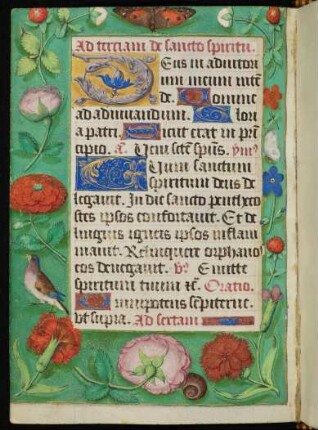 Ad terciam de sancto spiritu.
Deus in adiutori
um meum inten
de. Domine
ad adiuuandum. Glori
a patri. Sicut erat in prin
cipio. a. Veni scte spūs. ymˀ
Num sanctum
spiritum deus de
legauit. In die sancto penthecos
stes ipsos confortauit. Et de
linguis igneis ipsos inflam
mauit. Relinquere orphano
eos denegauit. v̄. Emitte
spiritum tuum ⁊c. Oratio.
Omnipotens sempiterne.
vt supra. Ad sextam